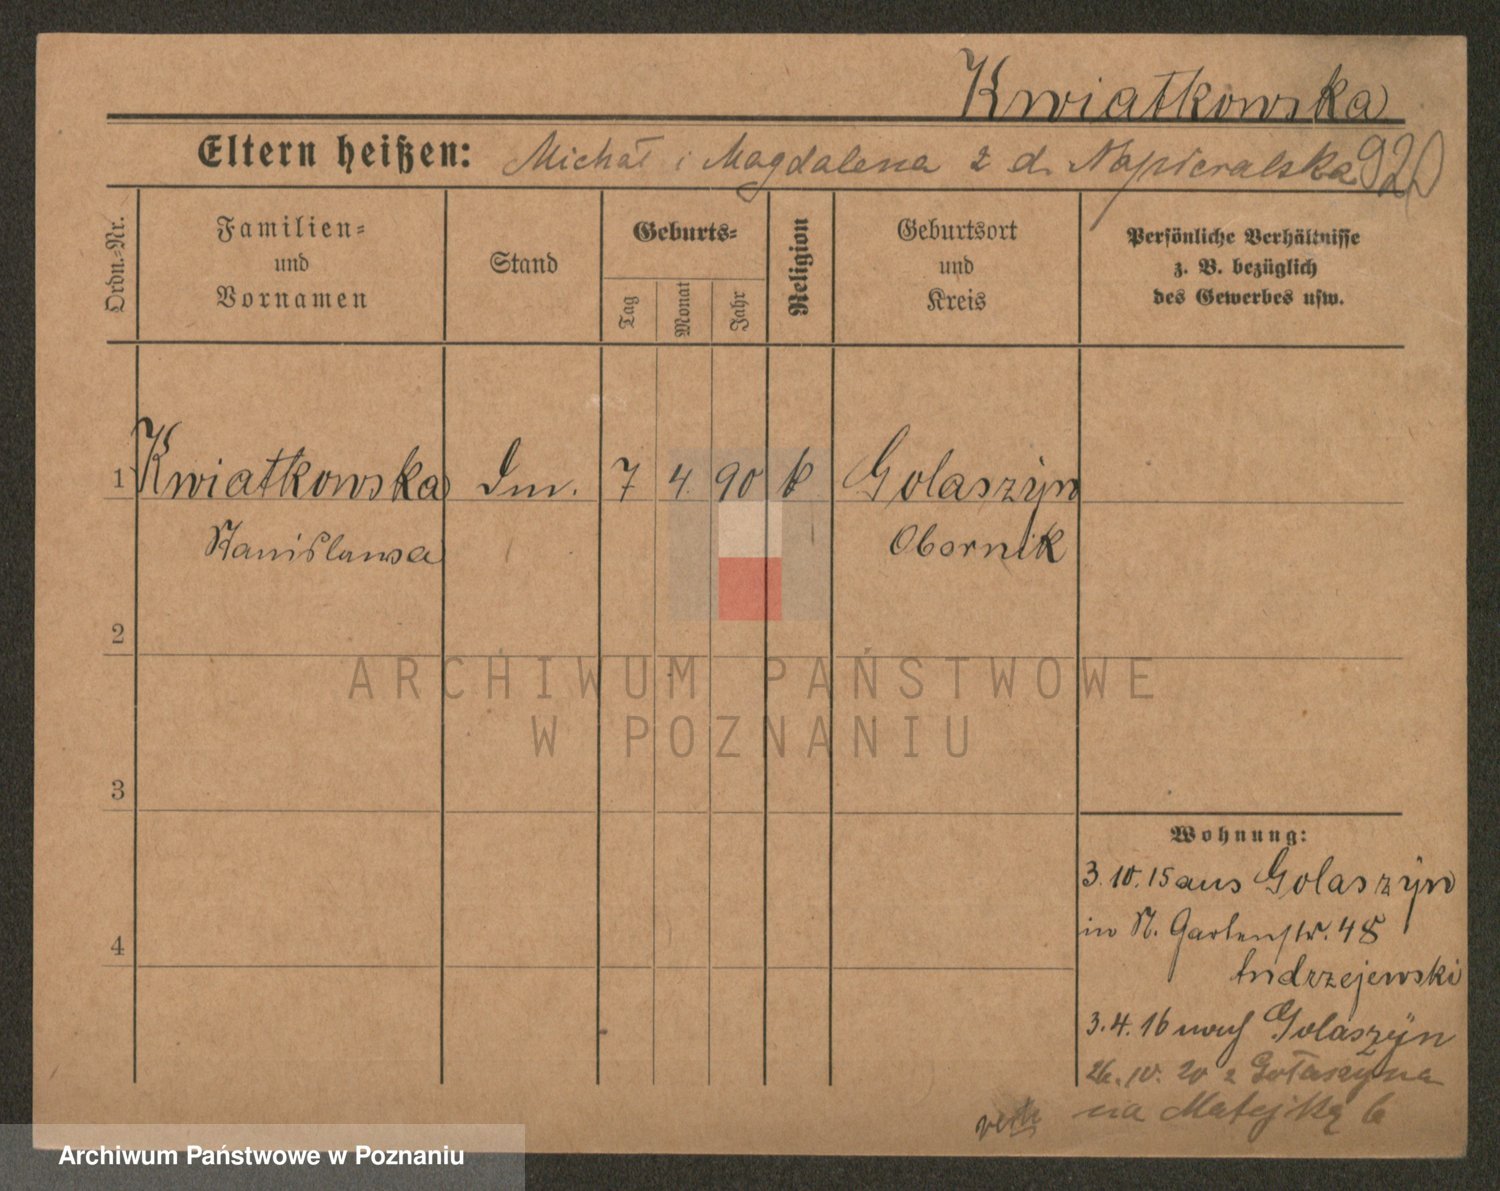 Kwiatkowska
Eltern heißen: Michał i Magdalena z d. Napieralska 920
Ordn.-Nr.
Familien-
und
Vornamen
Stand
Geburts-
Tag
Monat
Jahr
Religion
Geburtsort
und
Kreis
Persönliche Verhältnisse
z. B. bezüglich
des Gewerbes usw.
1 Kwiatkowska 7 4. 90 k Golaszyn
Stanislawa Obornik
2
3
4
Wohnung:
3.10.15 aus Golaszyn
in St. Gartenstr. 48
Andrzejewski
3.4.16 nach Golaszyn
26.10.20 z Gołaszyna
na Matejki 6
ARCHIWUM PAŃSTWOWE
W POZNANIU
Archiwum Państwowe w Poznaniu